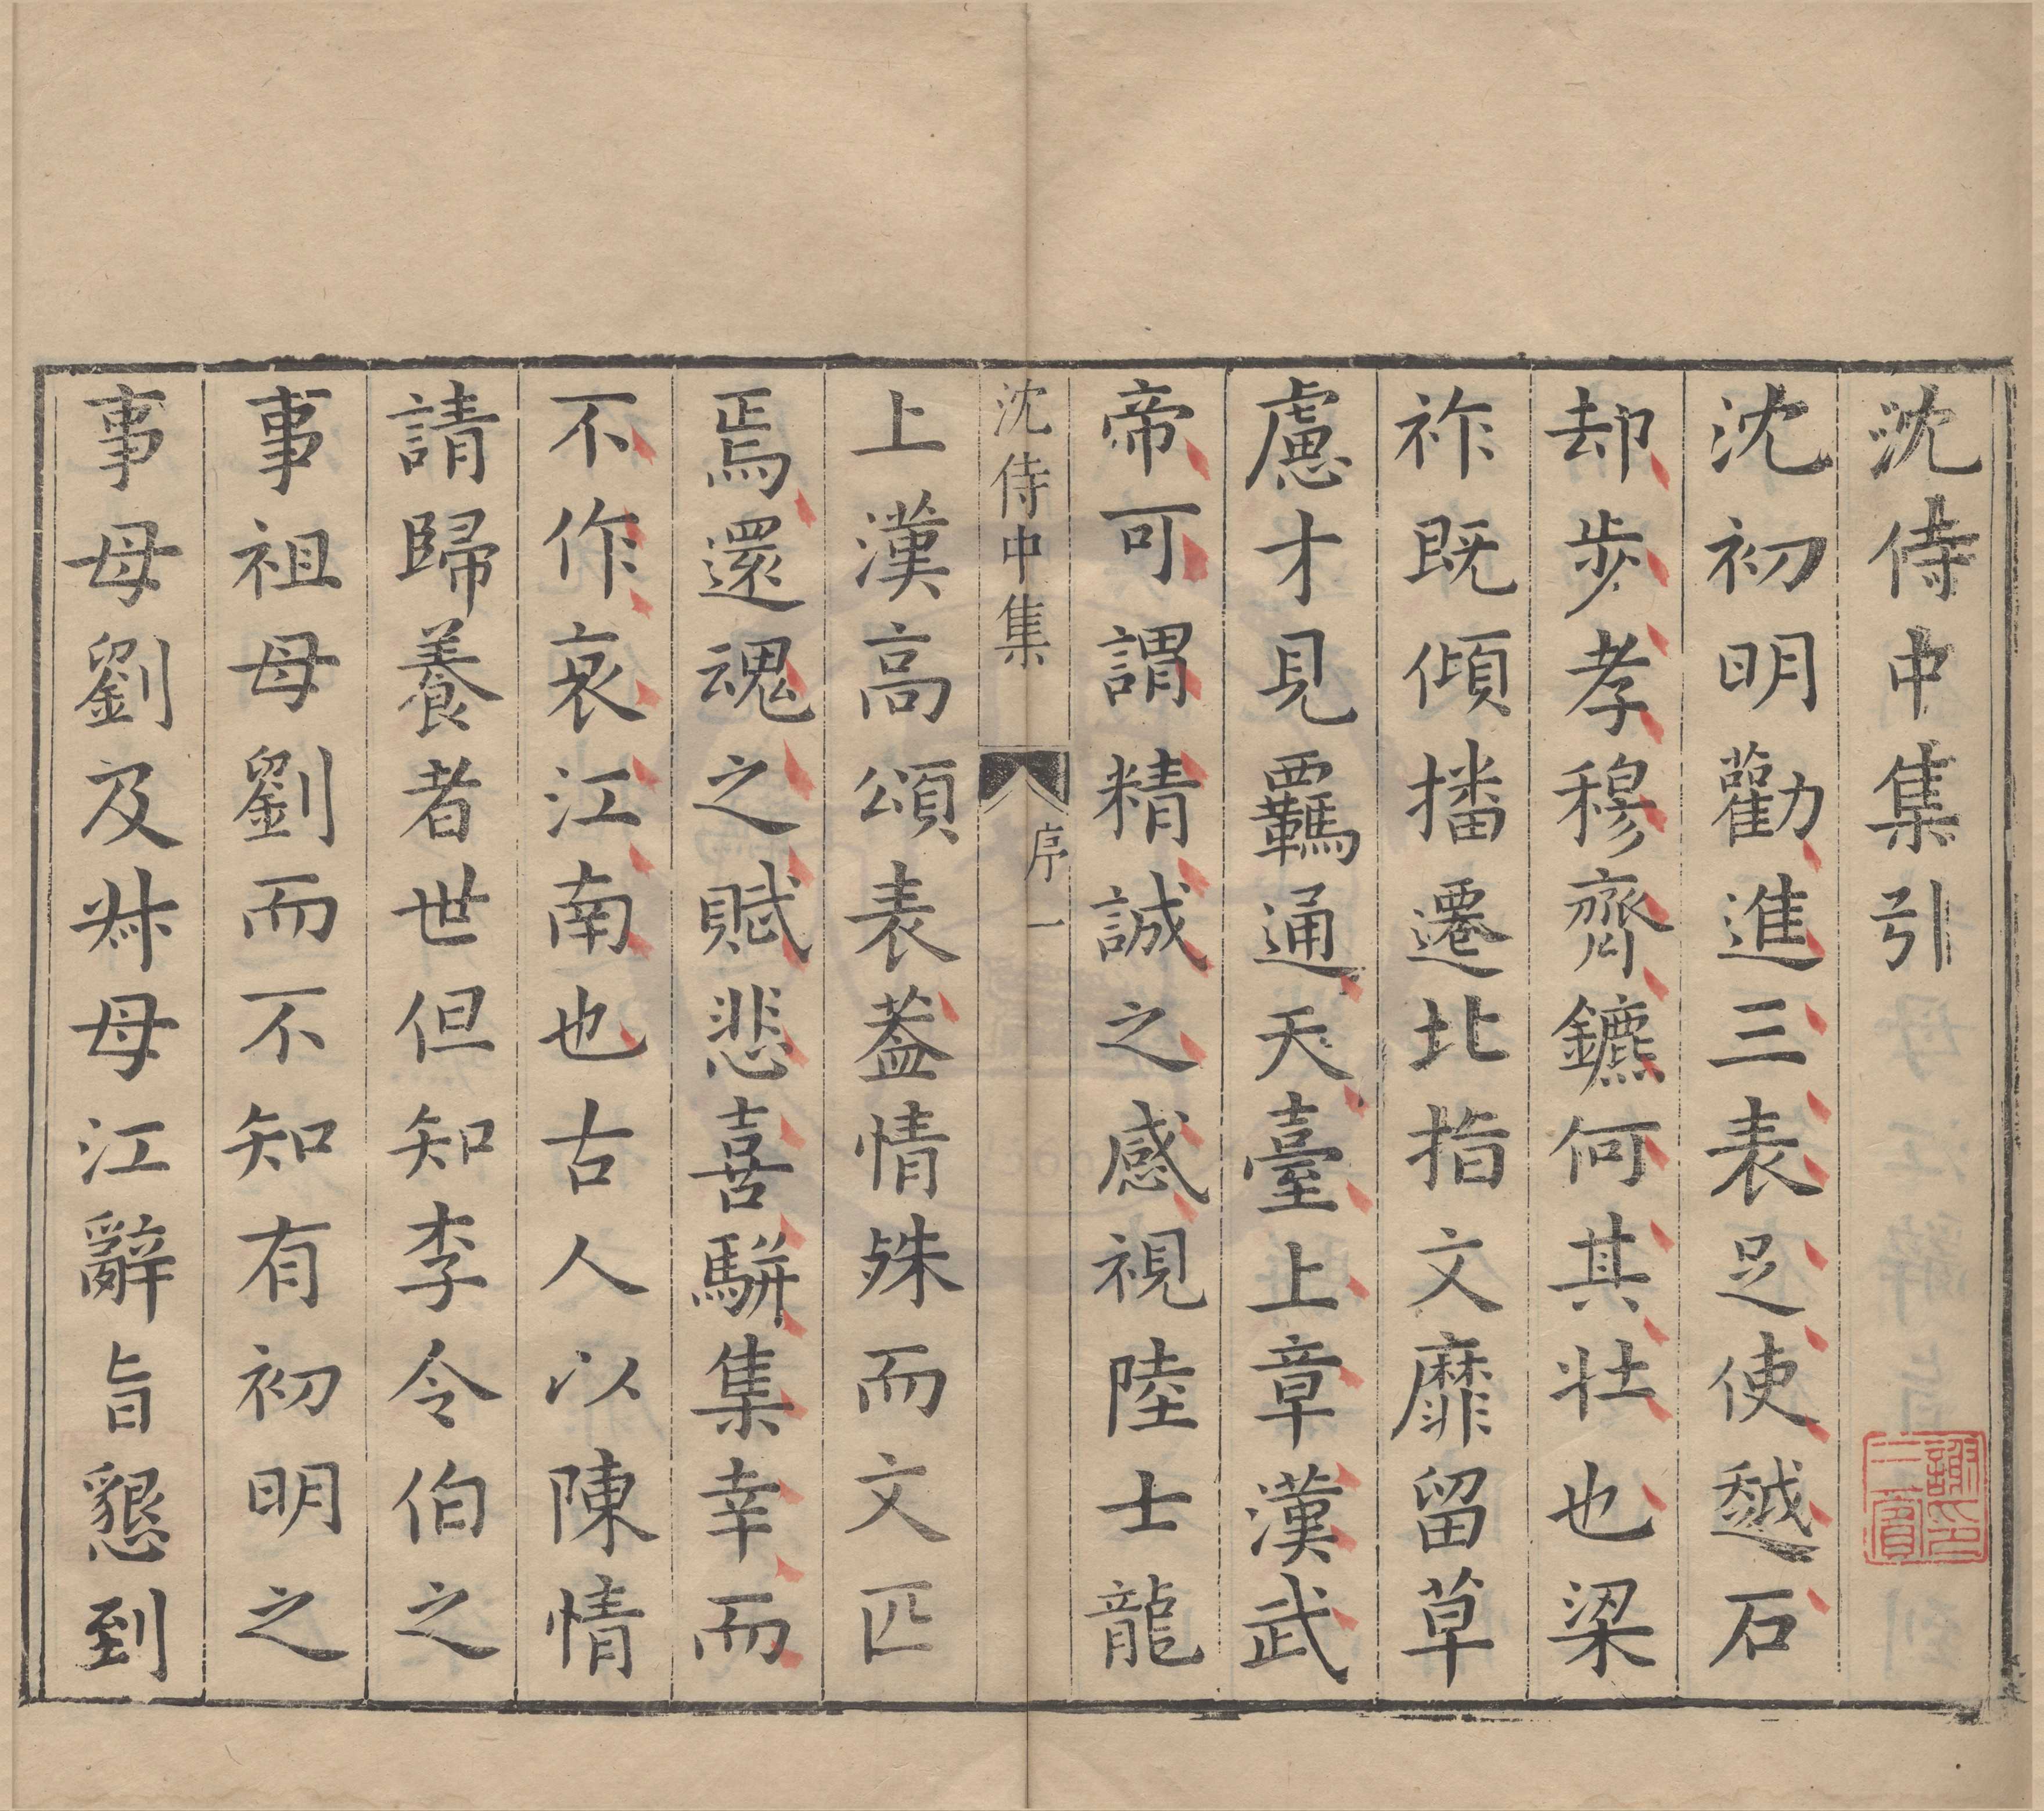 沈侍中集引
沈初明勸進三表足使越石
却步孝穆齊鑣何其壯也梁
祚既傾播遷北指文靡留草
慮才見羈通天臺上章漢武
帝可謂精誠之感視陸士龍
沈侍中集 序 一
上漢高頌表葢情殊而文匹
焉還魂之賦悲喜駢集幸而
不作哀江南也古人以陳情
請歸養者世但知李令伯之
事祖母劉而不知有初明之
事母劉及叔母江辭旨懇到
謝印三賓